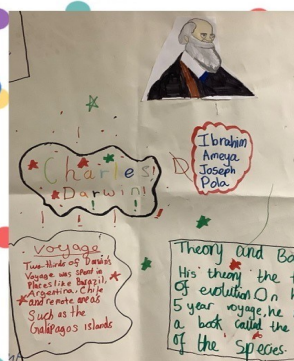 Charles!
Darwin!
Ibrahim
Ameya
Joseph
Pola
Voyage
Two thirds of Darwin's
Voyage was spent in
Places like Barazil,
Argentina, Chile
and remote areas
Such as the
Galapagos islands
Theory and Bo
His theory the t
Of evolution On h
5 year voyage, he
a book called the
of the Species.